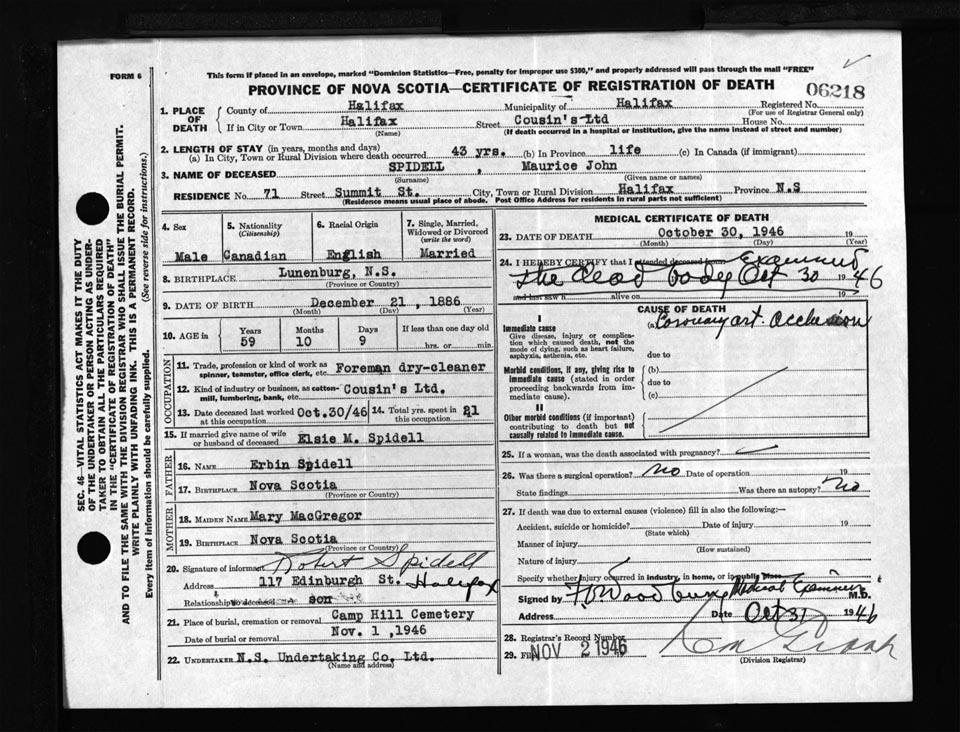 FORM 6
This form if placed in an envelope, marked "Dominion Statistics—Free, penalty for improper use $300," and properly addressed will pass through the mail "FREE"
PROVINCE OF NOVA SCOTIA—CERTIFICATE OF REGISTRATION OF DEATH
06218
1. PLACE OF DEATH
County of Halifax Municipality of Halifax Registered No.
(For use of Registrar General only)
If in City or Town Halifax Street Cousin's Ltd House No.
(Name) (If death occurred in a hospital or institution, give the name instead of street and number)
2. LENGTH OF STAY (in years, months and days)
(a) In City, Town or Rural Division where death occurred 43 yrs. (b) In Province life (c) In Canada (if immigrant)
3. NAME OF DECEASED SPIDELL , Maurice John
(Surname) (Given name or names)
RESIDENCE No. 71 Street Summit St. City, Town or Rural Division Halifax Province N.S
(Residence means usual place of abode. Post Office Address for residents in rural parts not sufficient)
4. Sex 5. Nationality (Citizenship) 6. Racial Origin 7. Single, Married, Widowed or Divorced (write the word)
Male Canadian English Married
8. BIRTHPLACE Lunenburg, N.S.
(Province or Country)
9. DATE OF BIRTH December 21, 1886
(Month) (Day) (Year)
10. AGE in Years Months Days If less than one day old
59 10 9 hrs. or min.
OCCUPATION
11. Trade, profession or kind of work as spinner, teamster, office clerk, etc. Foreman dry-cleaner
12. Kind of industry or business, as cotton-mill, lumbering, bank, etc. Cousin's Ltd.
13. Date deceased last worked at this occupation Oct.30/46 14. Total yrs. spent in this occupation 21
15. If married give name of wife or husband of deceased Elsie M. Spidell
FATHER
16. NAME Erbin Spidell
17. BIRTHPLACE Nova Scotia
(Province or Country)
MOTHER
18. MAIDEN NAME Mary MacGregor
19. BIRTHPLACE Nova Scotia
(Province or Country)
20. Signature of informant Robert Spidell
Address 117 Edinburgh St. Halifax
Relationship to deceased son
21. Place of burial, cremation or removal Camp Hill Cemetery
Date of burial or removal Nov. 1, 1946
22. UNDERTAKER N.S. Undertaking Co. Ltd.
(Name and address)
MEDICAL CERTIFICATE OF DEATH
23. DATE OF DEATH October 30, 1946 19
(Month) (Day) (Year)
24. I HEREBY CERTIFY that I attended deceased from Examined
the dead body Oct 30 1946
and last saw h alive on 19
CAUSE OF DEATH
I
Immediate cause (a) Coronary art. Occlusion
Give disease, injury or complication which caused death, not the mode of dying, such as heart failure, asphyxia, asthenia, etc.
due to
Morbid conditions, if any, giving rise to immediate cause (stated in order proceeding backwards from immediate cause).
(b)
due to
(c)
II
Other morbid conditions (if important) contributing to death but not causally related to immediate cause.
25. If a woman, was the death associated with pregnancy?
26. Was there a surgical operation? no Date of operation 19
State findings Was there an autopsy? No
27. If death was due to external causes (violence) fill in also the following:—
Accident, suicide or homicide? Date of injury 19
(State which)
Manner of injury
(How sustained)
Nature of injury
Specify whether injury occurred in industry, in home, or in public place
Signed by Medical Examiner M.D.
Address Date Oct 31 1946
28. Registrar's Record Number
29. Filed NOV 2 1946
(Division Registrar)
SEC. 46—VITAL STATISTICS ACT MAKES IT THE DUTY
OF THE UNDERTAKER OR PERSON ACTING AS UNDER-
TAKER TO OBTAIN ALL THE PARTICULARS REQUIRED
IN THE "CERTIFICATE OF REGISTRATION OF DEATH"
AND TO FILE THE SAME WITH THE DIVISION REGISTRAR WHO SHALL ISSUE THE BURIAL PERMIT.
WRITE PLAINLY WITH UNFADING INK. THIS IS A PERMANENT RECORD.
Every item of information should be carefully supplied. (See reverse side for instructions.)